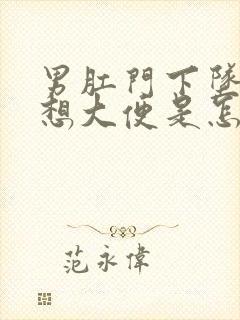 男肛門下墜
想大便是怎
范永偉